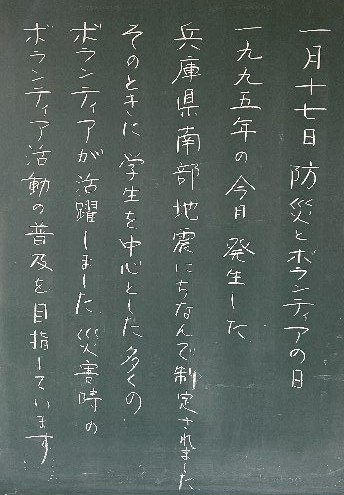 一月十七日 防災とボランティアの日
一九九五年の今日 発生した
兵庫県南部地震にちなんで制定されました
そのときに 学生を中心とした多くの
ボランティアが活躍しました 災害時の
ボランティア活動の普及を目指しています